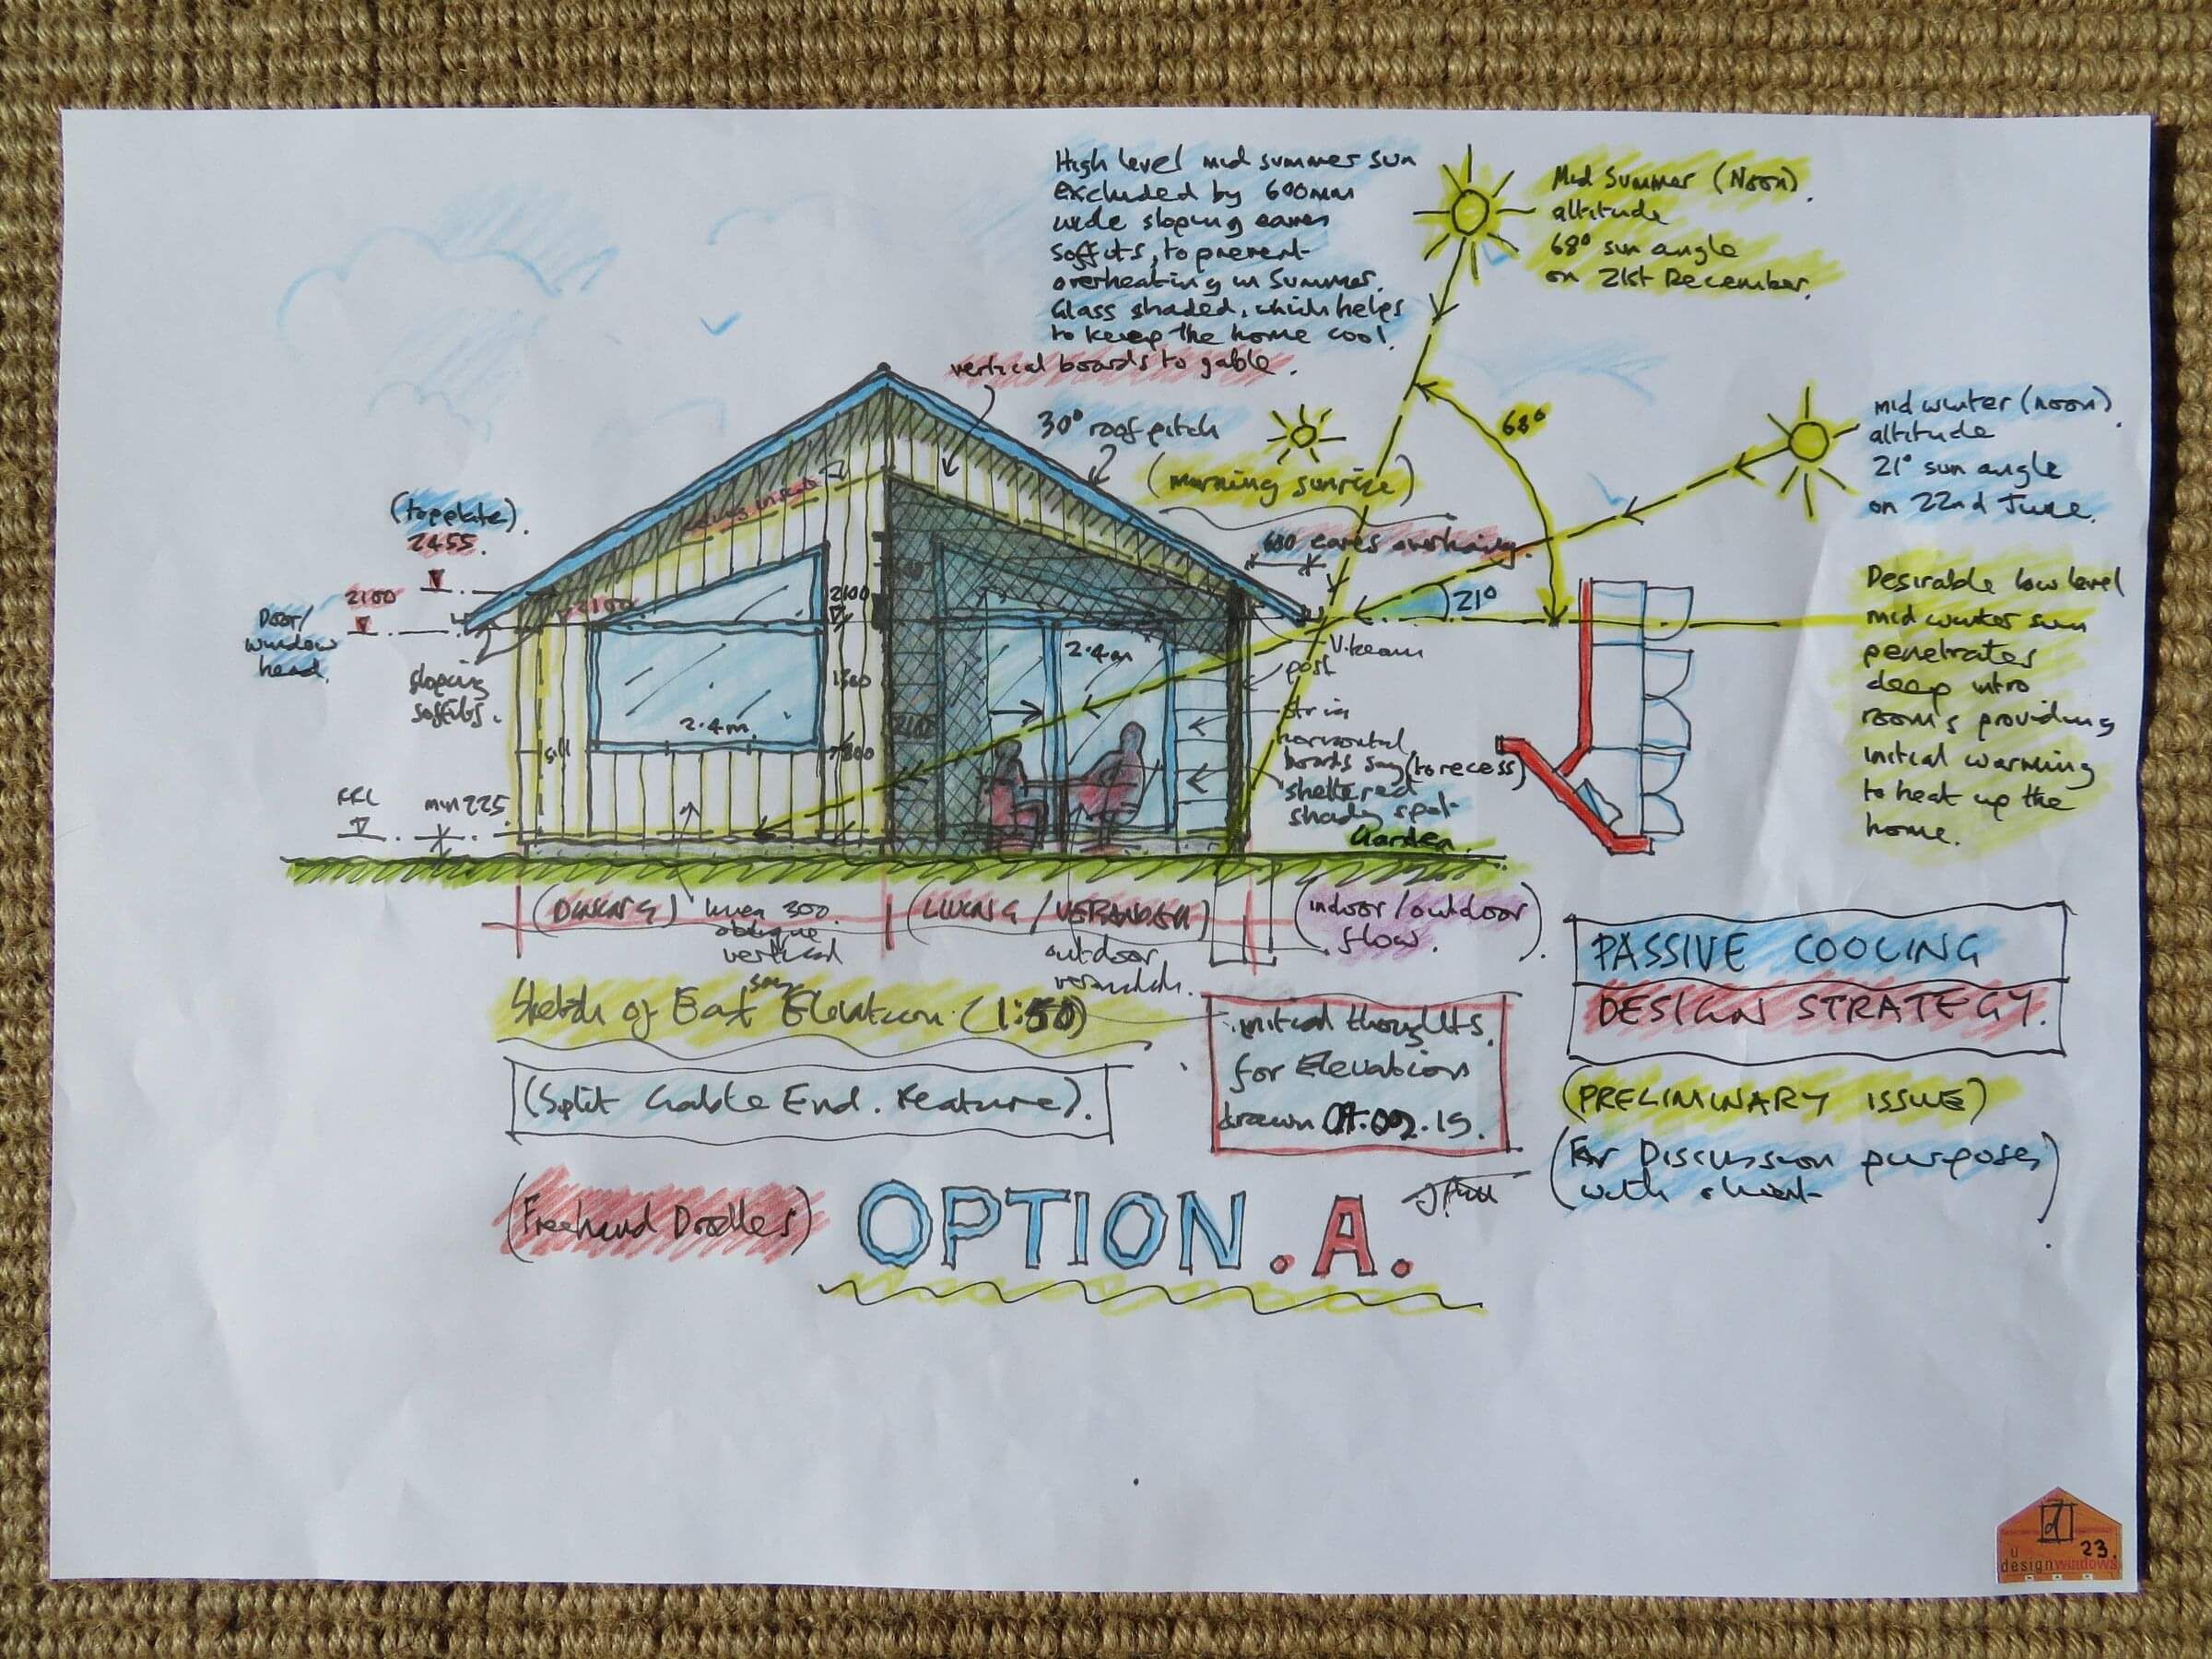 High level mid summer sun
excluded by 600mm
wide sloping eaves
soffits, to prevent
overheating in Summer.
Glass shaded, which helps
to keep the home cool.
vertical boards to gable.
Mid Summer (Noon).
altitude
68° sun angle
on 21st December.
30° roof pitch
(morning sunrise)
68°
mid winter (noon).
altitude
21° sun angle
on 22nd June.
(topplate).
2455.
2100
Door/
window
head.
sloping
soffits.
2100
2100
600 eaves overhang.
21°
Desirable low level
mid winter sun
penetrates
deep into
room's providing
initial warming
to heat up the
home.
V.beam
post
2.4m
2.4m.
sill
1300
800
2100
horizontal
boards say (to recess)
sheltered
shady spot
Garden.
FFL
min 225
(DINING)
300
oblique
vertical
say
(LIVING / VERANDAH)
outdoor
verandah.
(indoor/outdoor)
flow.
Sketch of East Elevation. (1:50)
(Split Gable End. Feature).
initial thoughts.
for Elevations
drawn
PASSIVE COOLING
DESIGN STRATEGY.
(PRELIMINARY ISSUE)
(For Discussion purposes)
with client
(Freehand Doodles)
OPTION.A.
d
u
23.
designwindows